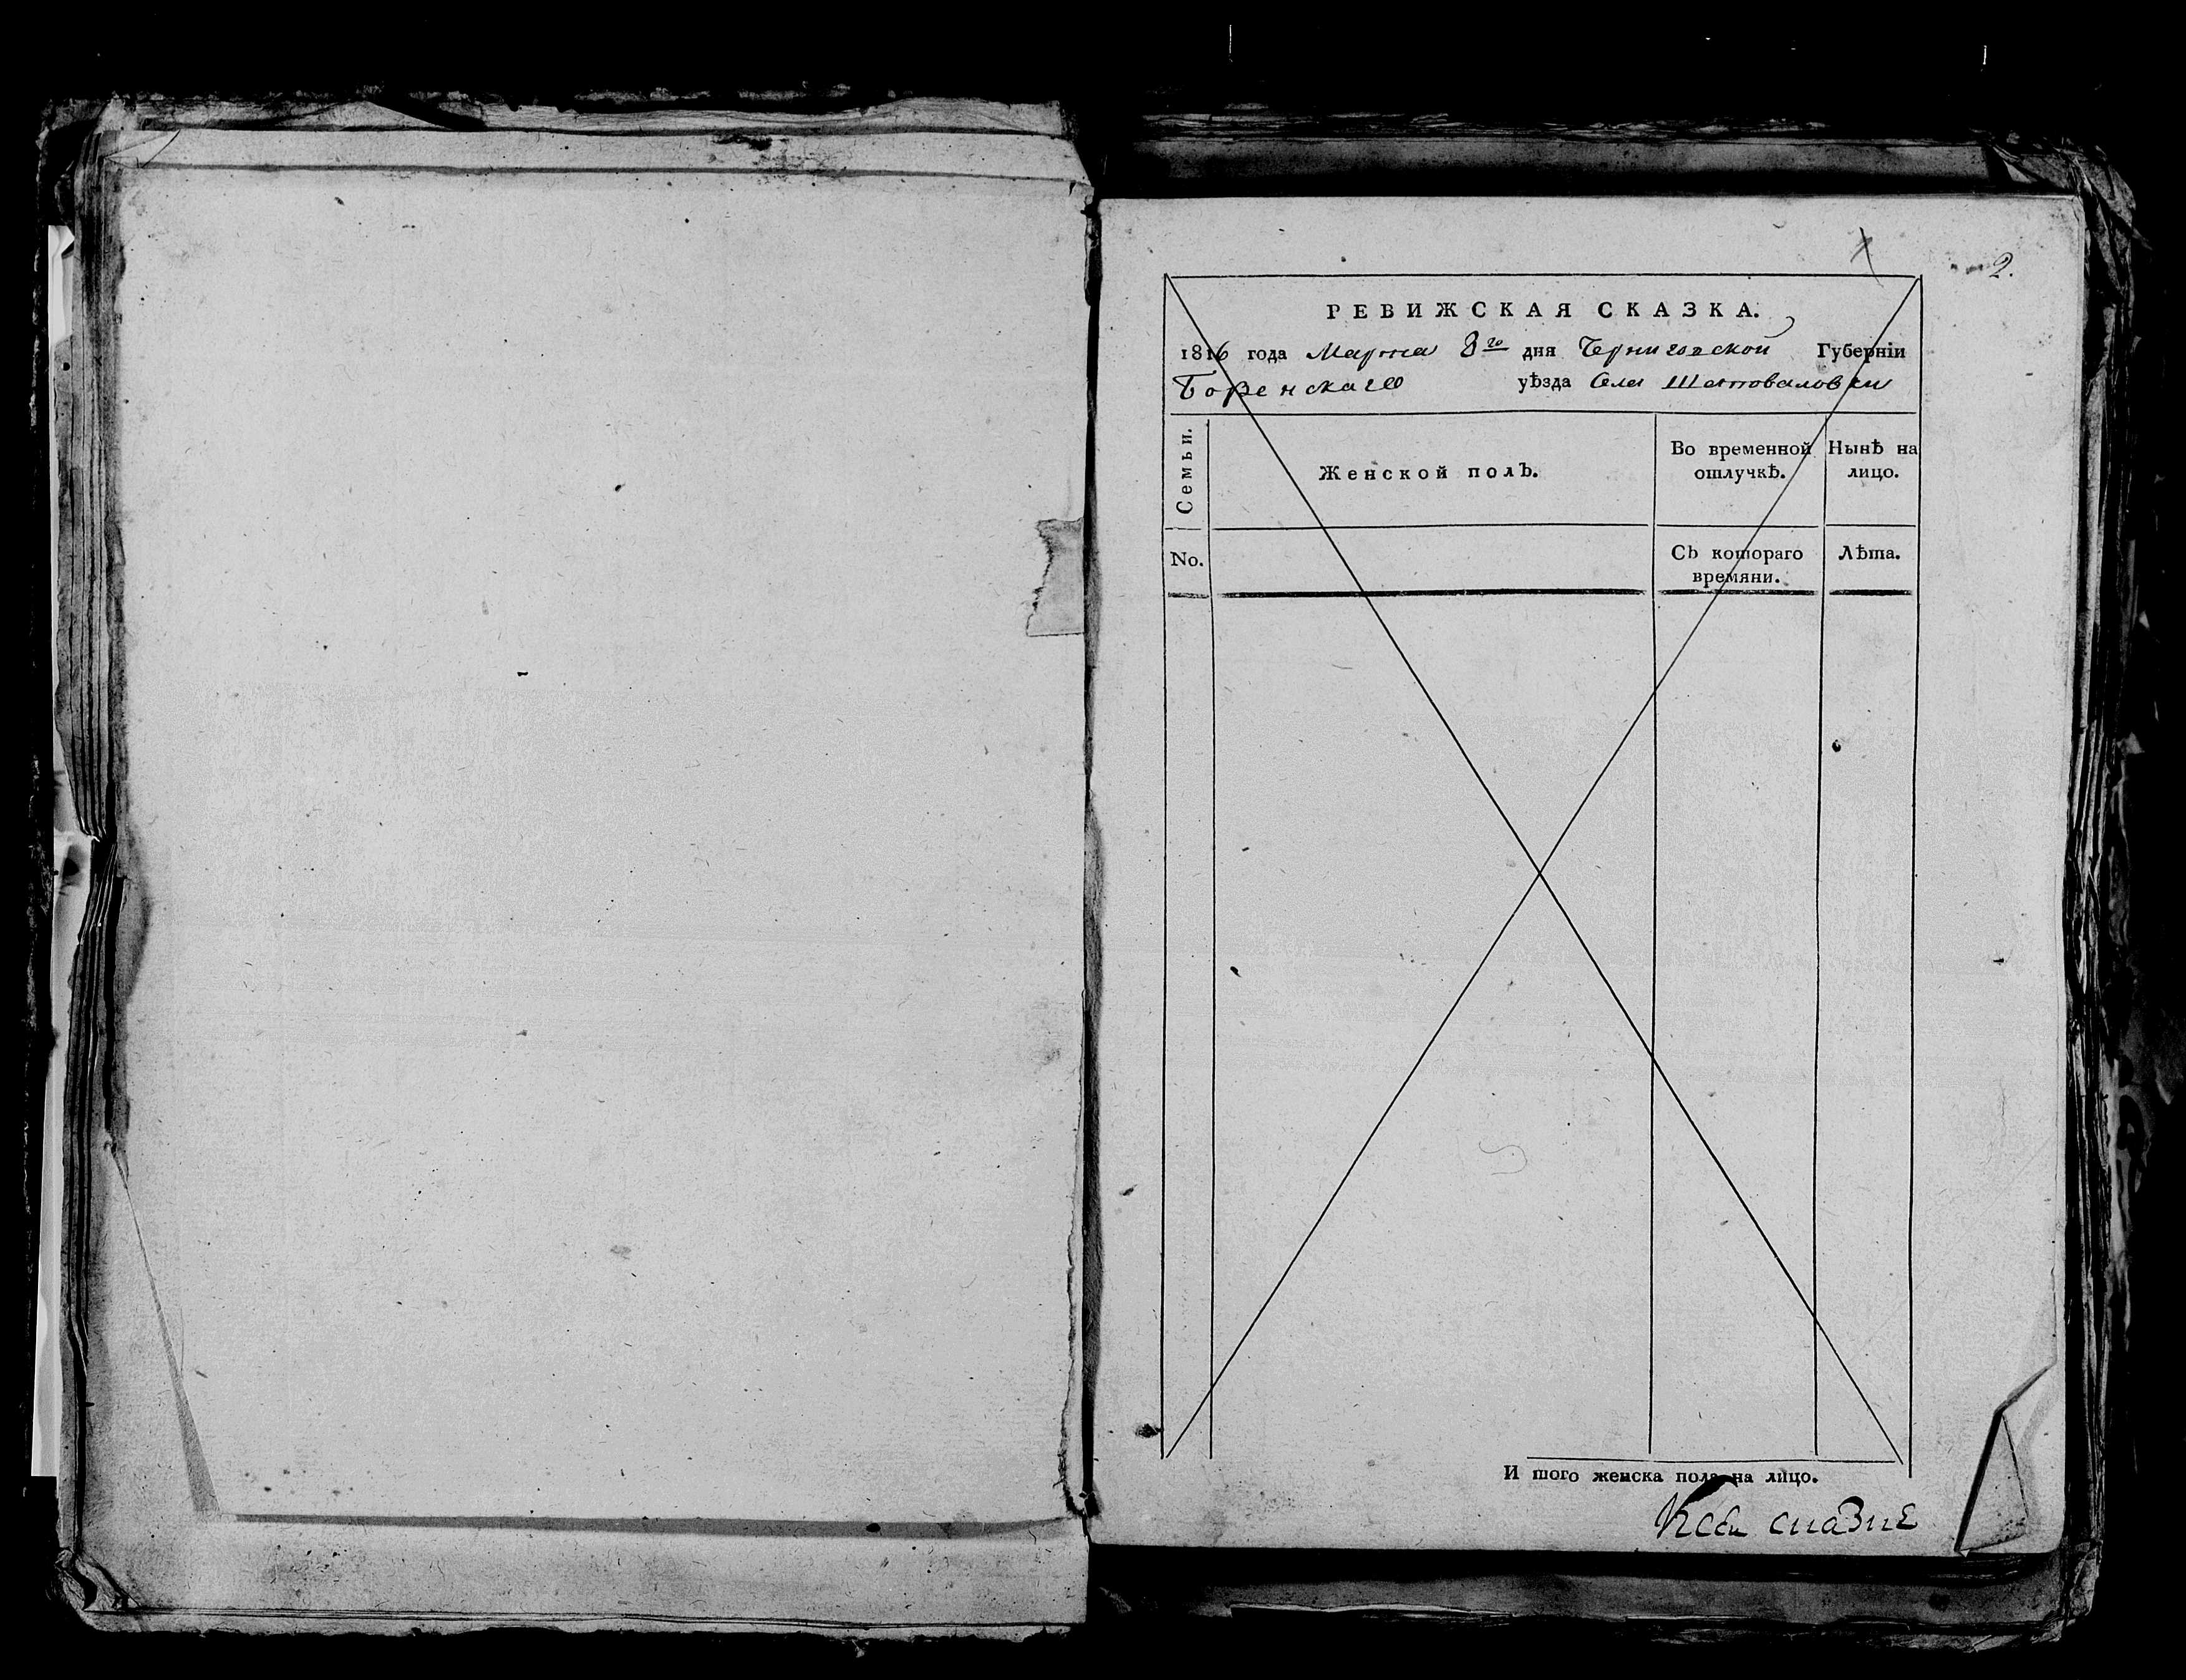 2.
РЕВИЖСКАЯ СКАЗКА.
1816 года Марта 8го дня Черниговской Губерніи
Боренскаго уѣзда Села Шаповаловки
Семьи.
Женской полЪ.
Во временной
отлучкѣ.
Нынѣ на
лицо.
No.
СЬ котораго
времяни.
Лѣта.
И того женска пола на лицо.
К сей сказке